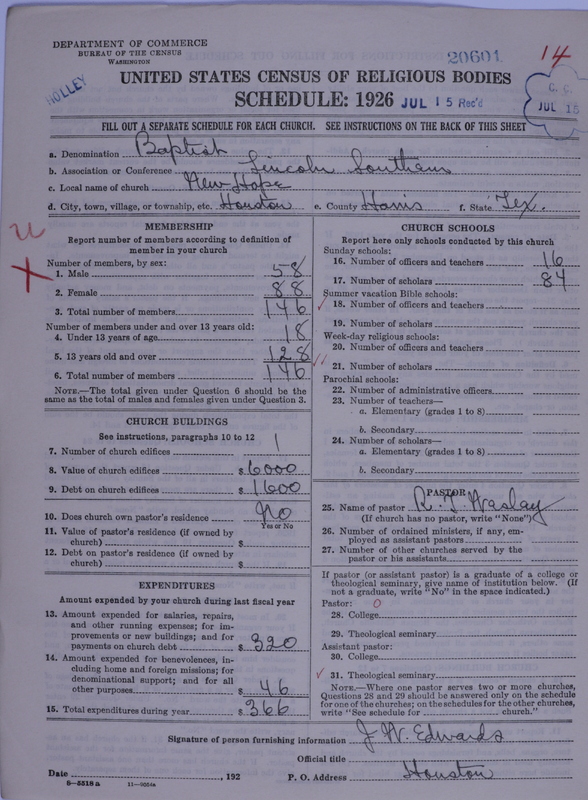 DEPARTMENT OF COMMERCE
BUREAU OF THE CENSUS
WASHINGTON
20601
14
HOLLEY
UNITED STATES CENSUS OF RELIGIOUS BODIES
SCHEDULE: 1926 JUL 15 Rec'd
C. C.
JUL 15
FILL OUT A SEPARATE SCHEDULE FOR EACH CHURCH. SEE INSTRUCTIONS ON THE BACK OF THIS SHEET
a. Denomination Baptist
b. Association or Conference Lincoln Southern
c. Local name of church New Hope
d. City, town, village, or township, etc. Houston e. County Harris f. State Tex.
MEMBERSHIP
Report number of members according to definition of
member in your church
Number of members, by sex:
1. Male 58
2. Female 88
3. Total number of members 146
Number of members under and over 13 years old:
4. Under 13 years of age 18
5. 13 years old and over 128
6. Total number of members 146
NOTE.—The total given under Question 6 should be the
same as the total of males and females given under Question 3.
CHURCH BUILDINGS
See instructions, paragraphs 10 to 12
7. Number of church edifices 1
8. Value of church edifices $6000
9. Debt on church edifices $1600
10. Does church own pastor's residence No
Yes or No
11. Value of pastor's residence (if owned by
church) $
12. Debt on pastor's residence (if owned by
church) $
EXPENDITURES
Amount expended by your church during last fiscal year
13. Amount expended for salaries, repairs,
and other running expenses; for im-
provements or new buildings; and for
payments on church debt $320
14. Amount expended for benevolences, in-
cluding home and foreign missions; for
denominational support; and for all
other purposes $46
15. Total expenditures during year $366
CHURCH SCHOOLS
Report here only schools conducted by this church
Sunday schools:
16. Number of officers and teachers 16
17. Number of scholars 84
Summer vacation Bible schools:
18. Number of officers and teachers
19. Number of scholars
Week-day religious schools:
20. Number of officers and teachers
21. Number of scholars
Parochial schools:
22. Number of administrative officers
23. Number of teachers—
a. Elementary (grades 1 to 8)
b. Secondary
24. Number of scholars—
a. Elementary (grades 1 to 8)
b. Secondary
PASTOR
25. Name of pastor R. T.
(If church has no pastor, write "None")
26. Number of ordained ministers, if any, em-
ployed as assistant pastors
27. Number of other churches served by the
pastor or his assistants
If pastor (or assistant pastor) is a graduate of a college or
theological seminary, give name of institution below. (If
not a graduate, write "No" in the space indicated.)
Pastor: 0
28. College
29. Theological seminary
Assistant pastor:
30. College
31. Theological seminary
NOTE.—Where one pastor serves two or more churches,
Questions 28 and 29 should be answered only on the schedule
for one of the churches; on the schedules for the other churches,
write "See schedule for church."
Signature of person furnishing information J. W. Edwards
Official title
Date , 192 P. O. Address Houston
8—5518a 11—9004a